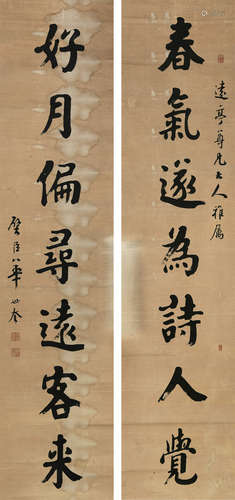 春氣遂為詩人覺
遠亭尊兄大人雅屬
好月偏尋遠客來
華世奎